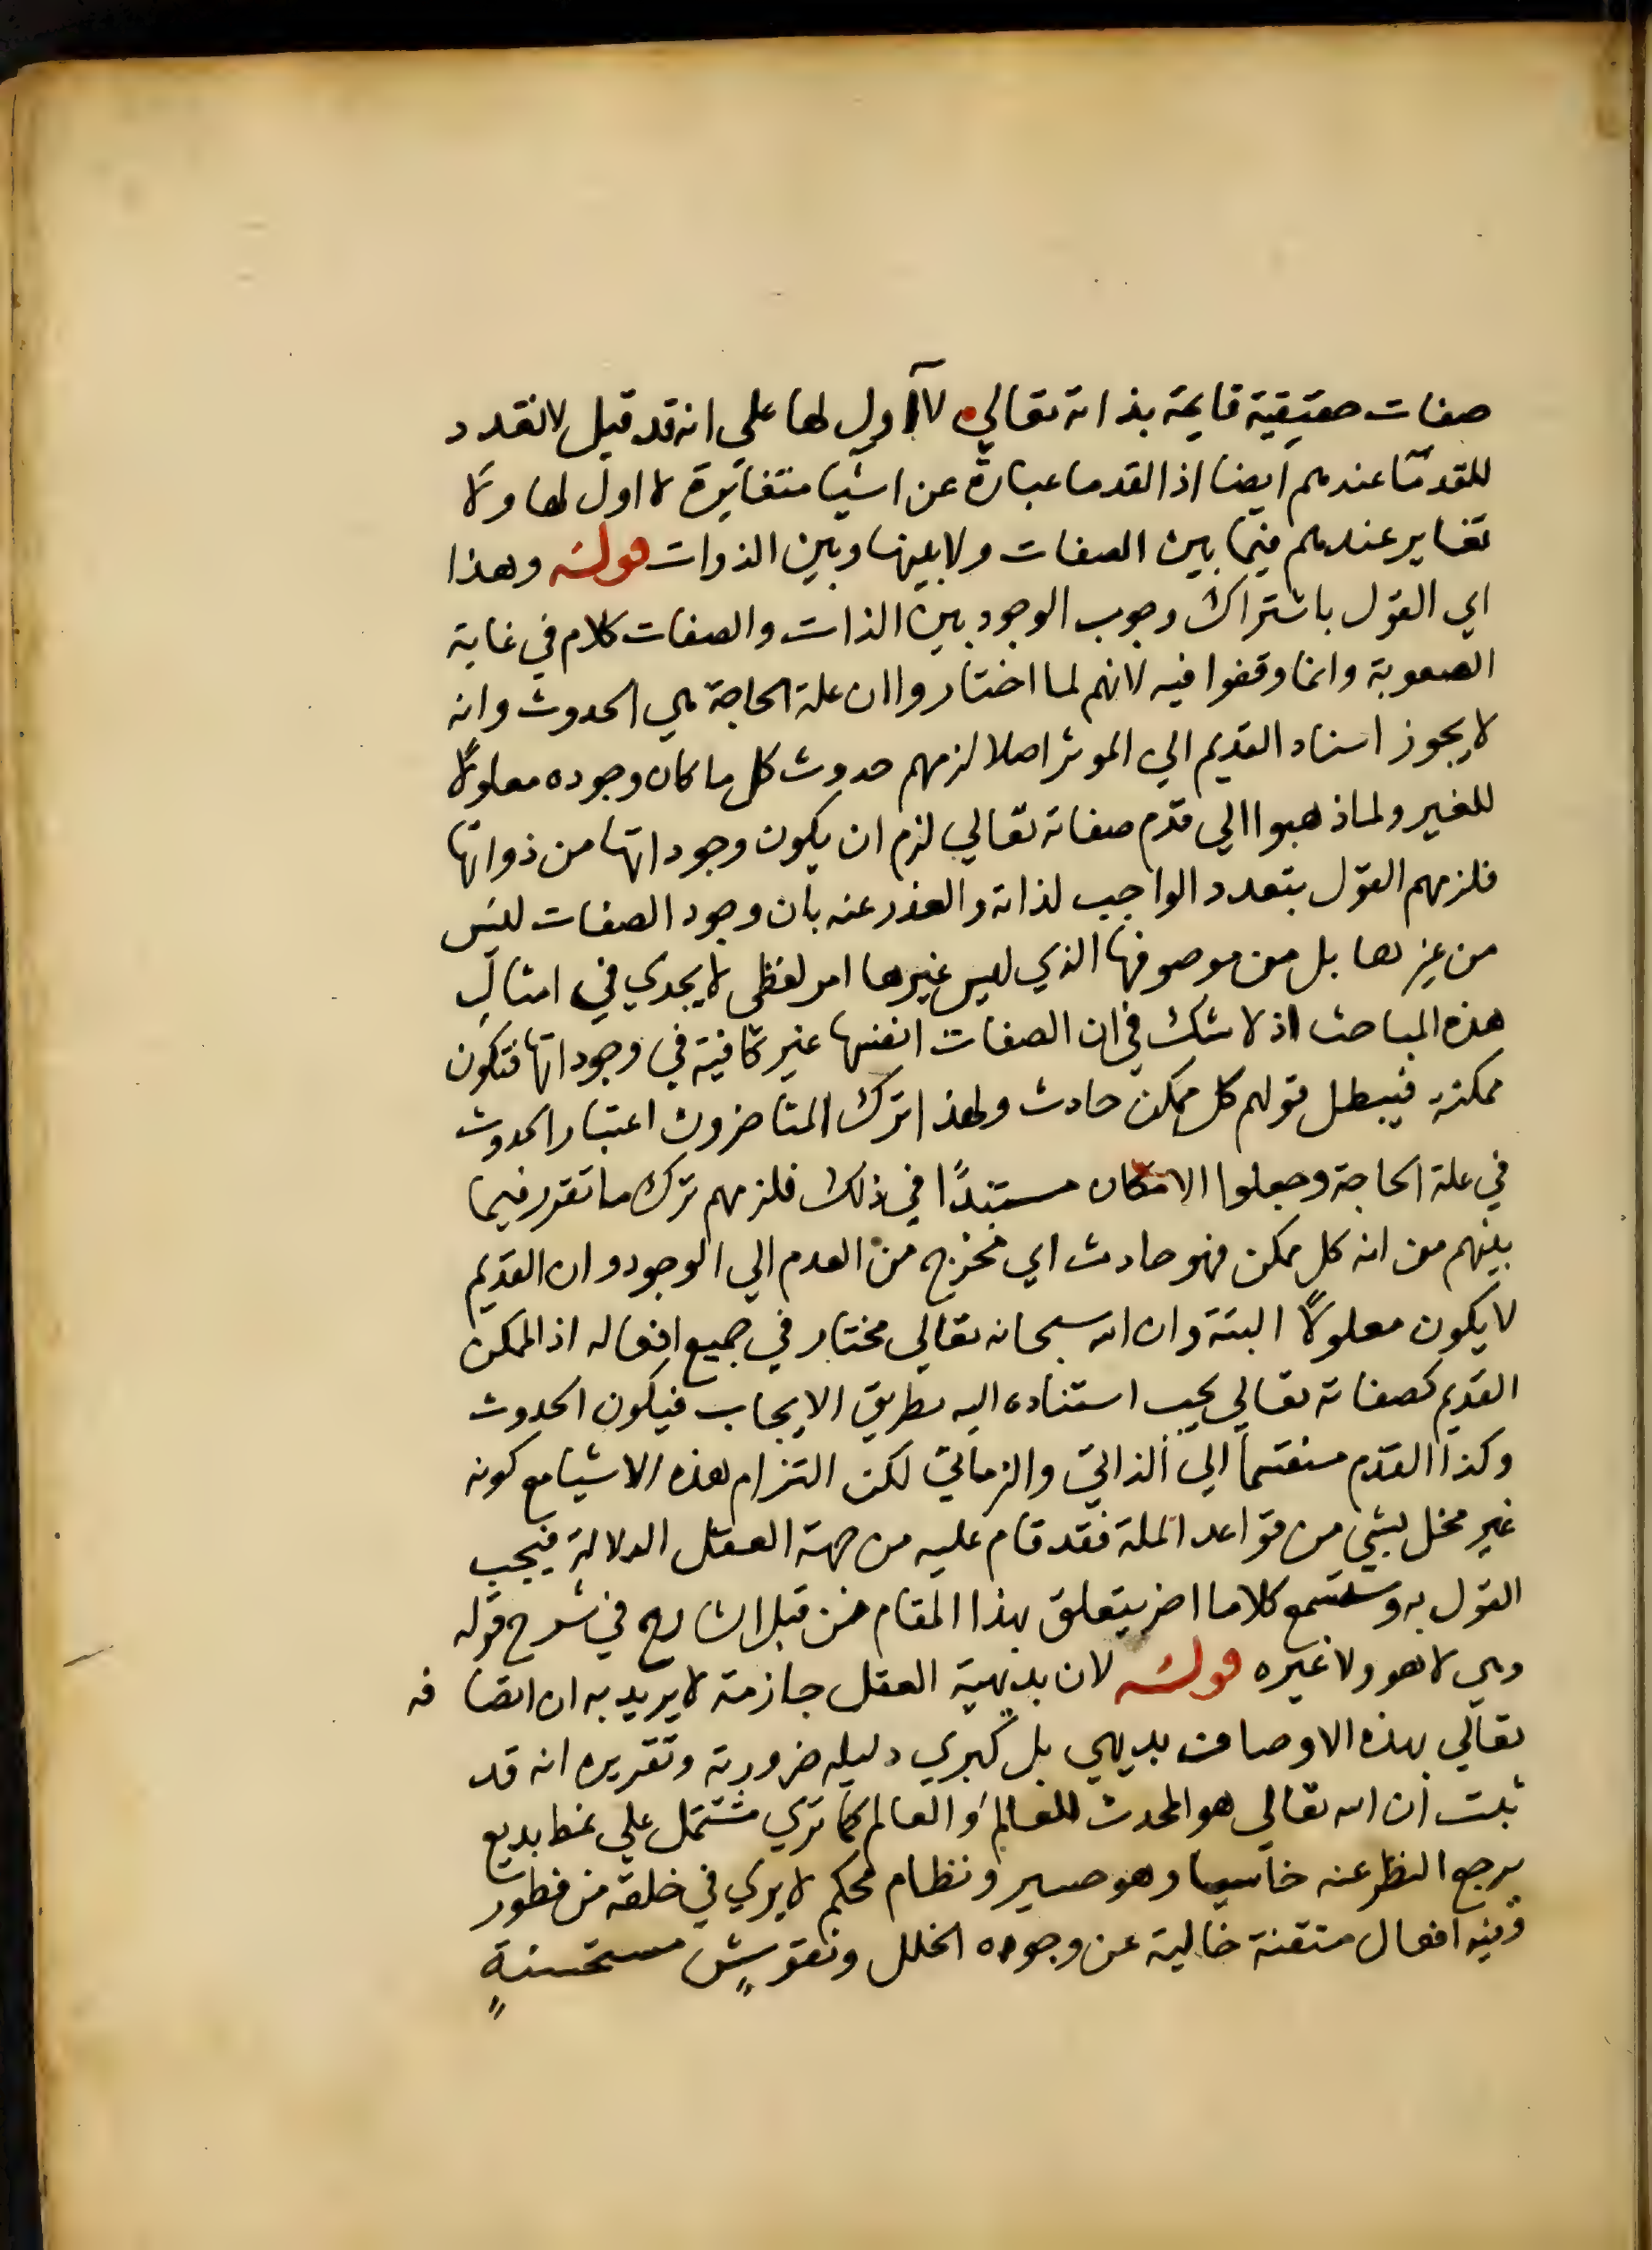 صفات حقيقية قايمة بذاته تعالي لا اول لها علي انه قد قيل لا تعدد
للقدما عندهم ايضا اذ القدما عبارة عن اشيا متغايرة لا اول لها ولا
تغاير عندهم فيما بين الصفات ولا بينها وبين الذوات قوله وهذا
اي القول باشتراك وجوب الوجود بين الذات والصفات كلام في غاية
الصعوبة وانما وقفوا فيه لانهم لما اختاروا ان علة الحاجة هي الحدوث وانه
لا يجوز اسناد القديم الي الموثر اصلا لزمهم حدوث كل ما كان وجوده معلولًا
للغير ولما ذهبوا الي قدم صفاته تعالي لزم ان يكون وجوداتها من ذواتها
فلزمهم القول بتعدد الواجب لذاته والعذر عنه بان وجود الصفات ليس
من غيرها بل من موصوفها الذي ليس غيرها امر لفظي لا يجدي في امثال
هذه المباحث اذ لا شك في ان الصفات انفسها غير كافية في وجوداتها فتكون
ممكنة فيبطل قولهم كل ممكن حادث ولهذا ترك المتاخرون اعتبار الحدوث
في علة الحاجة وجعلوا الامكان مستبدًا في ذلك فلزمهم ترك ما تقرر فيما
بينهم من انه كل ممكن فهو حادث اي مخرج من العدم الي الوجود وان القديم
لا يكون معلولًا البتة وان الله سبحانه تعالي مختار في جميع افعاله اذ الممكن
القديم كصفاته تعالي يجب استناده اليه بطريق الايجاب فيكون الحدوث
وكذا القدم منقسما الي الذاتي والزماني لكن التزام هذه الاشيا مع كونه
غير مخل بشي من قواعد الملة فقد قام عليه من جهة العقل الدلالة فيجب
القول به وستسمع كلاما اخر يتعلق بهذا المقام من قبل الشارح في شرح قوله
وهي لا هو ولا غيره قوله لان بديهية العقل جازمة لا يريد به ان اتصافه
تعالي بهذه الاوصاف بديهي بل كبري دليله ضرورية وتقريره انه قد
ثبت ان الله تعالي هو المحدث للعالم والعالم كما تري مشتمل علي نمط بديع
يرجع النظر عنه خاسيا وهو حسير ونظام محكم لا يري في خلقه من فطور
وفيه افعال متقنة خالية عن وجوه الخلل ونقوشٍ مستحسنةٍ